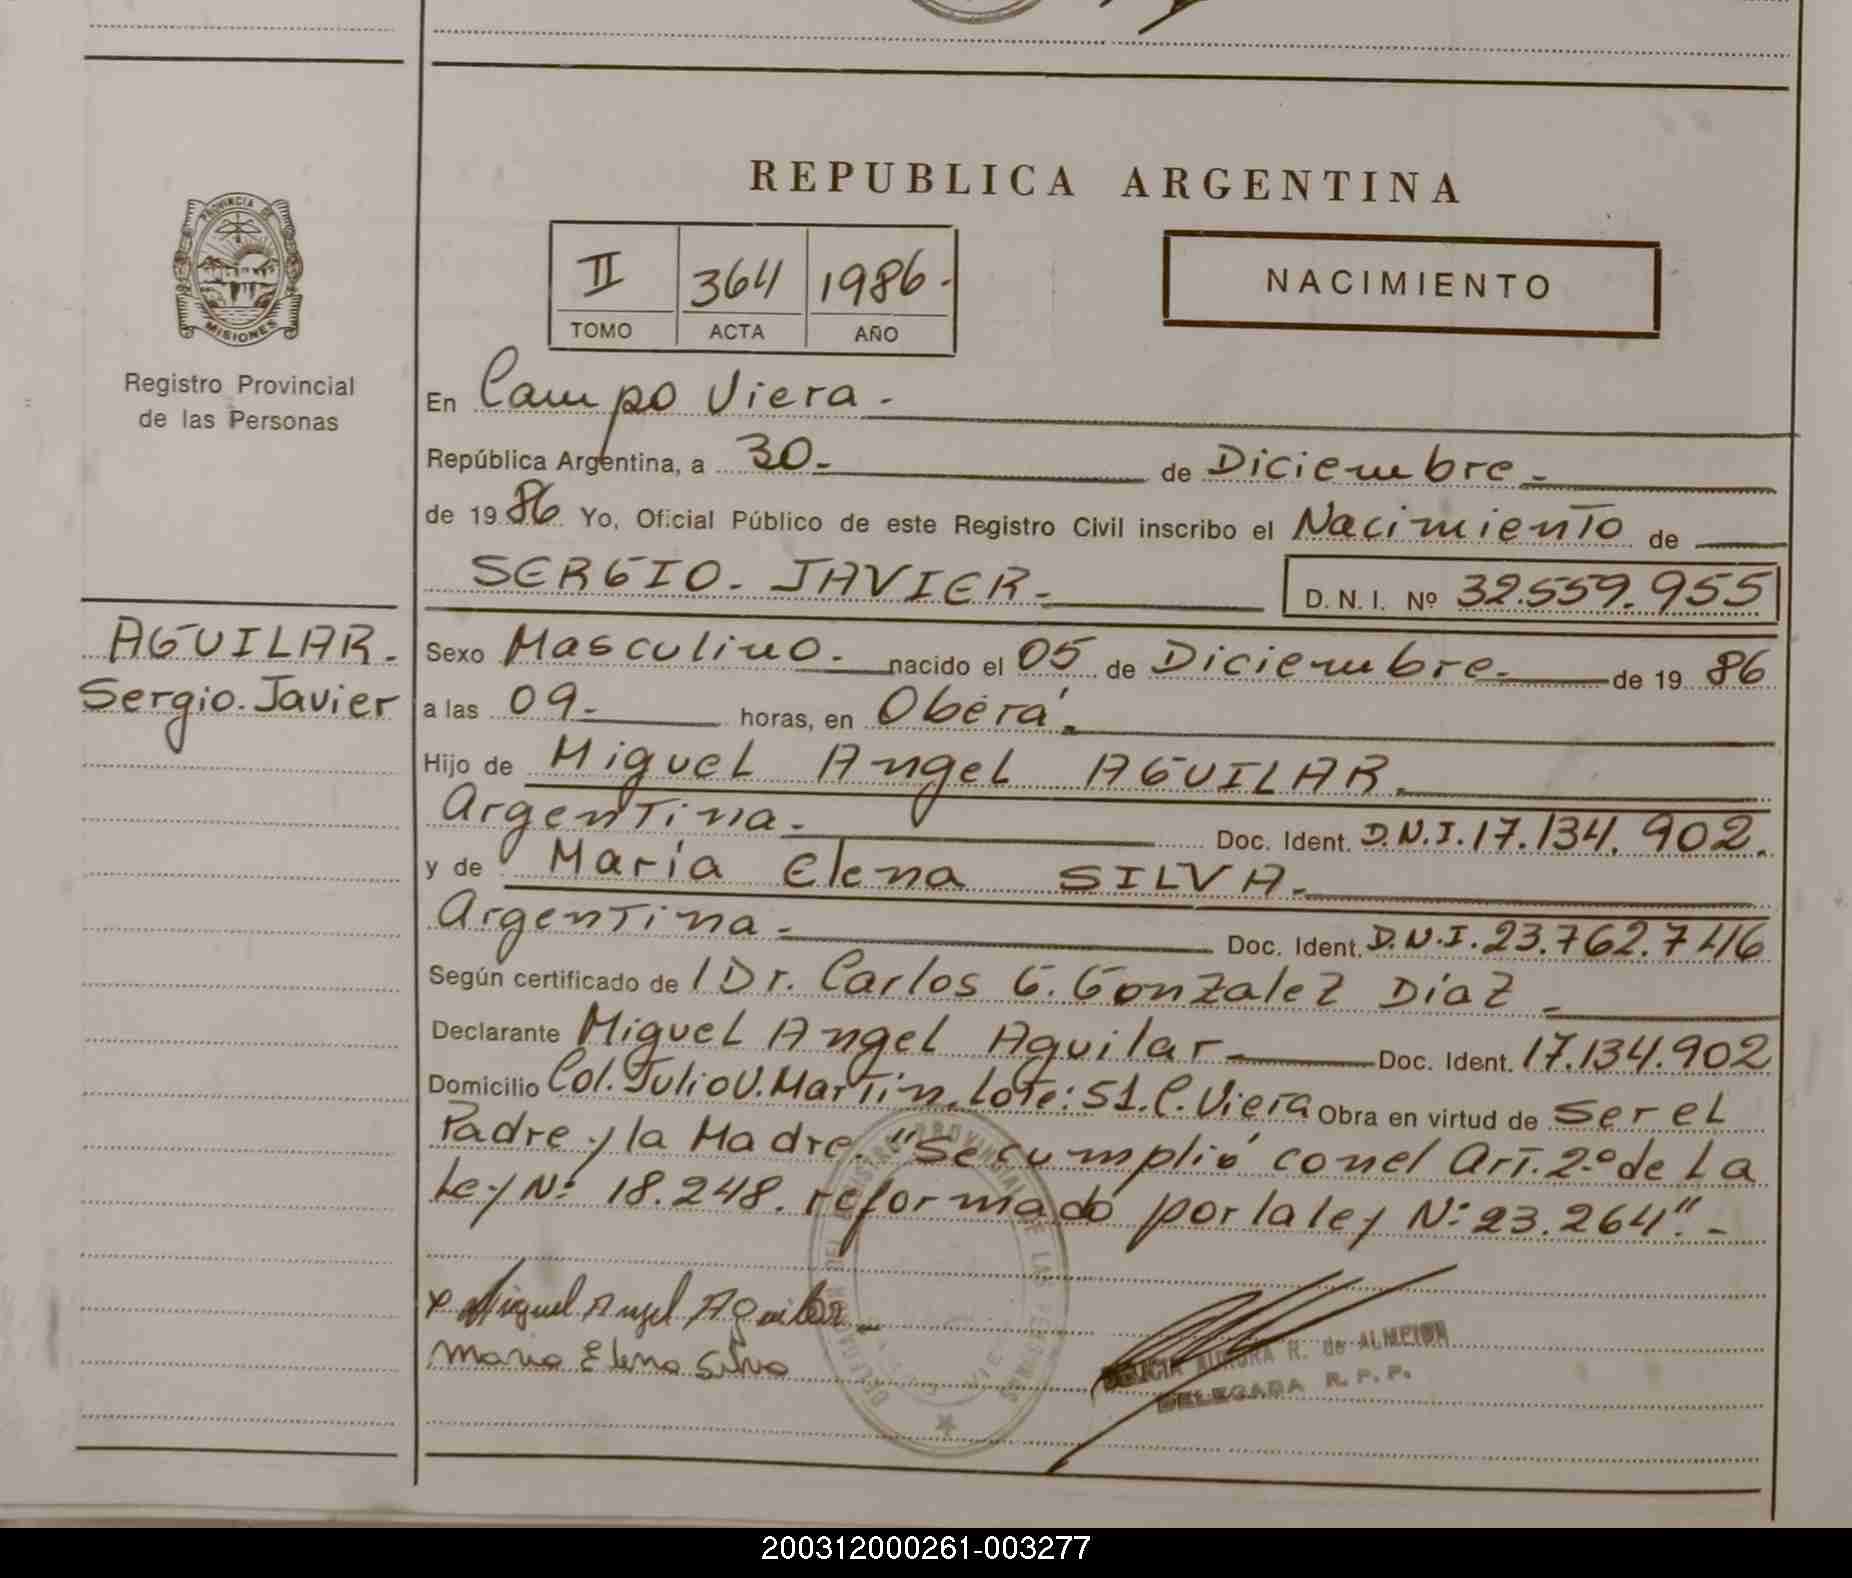 REPUBLICA ARGENTINA
PROVINCIA DE
MISIONES
Registro Provincial
de las Personas
II 364 1986.
TOMO ACTA AÑO
NACIMIENTO
En Campo Viera.
República Argentina, a 30 de Diciembre
de 1986 Yo, Oficial Público de este Registro Civil inscribo el Nacimiento de
SERGIO. JAVIER. D. N. I. Nº 32.559.955
AGUILAR.
Sergio. Javier
Sexo Masculino. nacido el 05 de Diciembre. de 19 86
a las 09 horas, en Oberá.
Hijo de Miguel Angel AGUILAR.
Argentina. Doc. Ident. D.N.I. 17.134.902.
y de María Elena SILVA.
Argentina. Doc. Ident. D.N.I. 23.762.746
Según certificado de / Dr. Carlos G. Gonzalez Díaz
Declarante Miguel Angel Aguilar Doc. Ident. 17.134.902
Domicilio Col. Julio U. Martin. Lote: 51. C. Viera Obra en virtud de ser el
Padre y la Madre. "Se cumplió con el Art. 2º de La
Ley Nº 18.248. reformado por la ley Nº 23.264". -
x Miguel Angel Aguilar
Maria Elena Silva
AURORA R. de ALMEIDA
DELEGADA R. P. P.
200312000261-003277